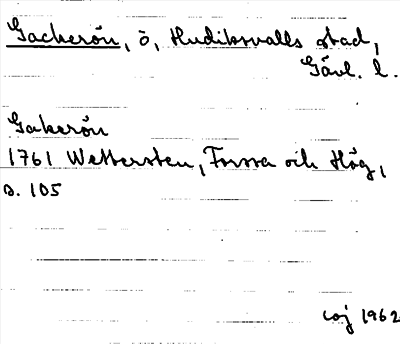 Gackerön, ö, Hudiksvalls stad,
Gävl. l.
Gakerön
1761 Wettersten, Forssa och Hög,
s. 105
coj 1962